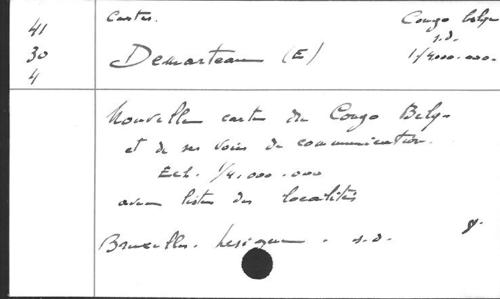 41
30
4
Cartes.
Congo belge
s.d.
1/4000.000.
Demarteau (E)
Nouvelle carte du Congo Belge
et de ses voies de communication.
Ech. 1/4.000.000
avec listes des localités
Bruxelles. Lesigne. s.d.